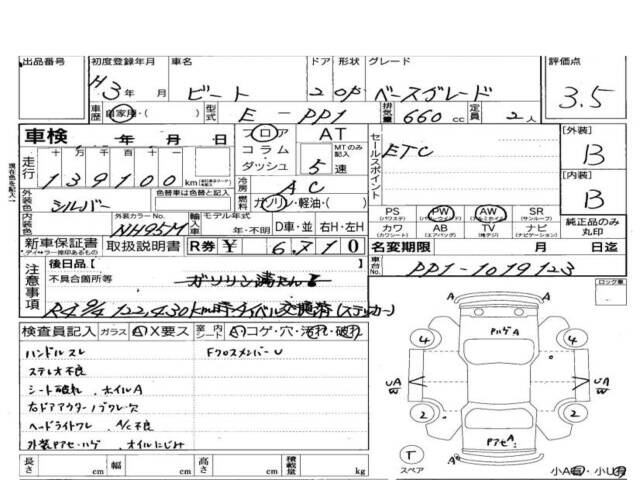 出品番号 初度登録年月 車名 ドア 形状 グレード 評価点
H 3年 月 ビート 2 OP ベースグレード 3.5
車歴 自家用・( ) 型式 E - PP1 排気量 660 cc 定員 2人
車検 年 月 日 フロア AT セールスポイント [外装]
コラム MTのみ記入 ETC B
走行 十万千百十一 ダッシュ 5速
139100 km 冷房 AC [内装]
外装色 シルバー 色替車は色替と記入 燃料 ガソリン・軽油・( ) B
内装色 外装カラーNo. NH95M 輸入車 モデル年式 年・不明 D車・並 右H・左H
PS (パワステ) PW (パワーウィンド) AW (アルミホイル) SR (サンルーフ)
カワ (カワシート) AB (エアバッグ) TV (地デジ) ナビ (ナビゲーション) 純正品のみ丸印
新車保証書 取扱説明書 R券 ¥ 6710 名変期限 月 日迄
注意事項 後日品 [ ] 車台No. PP1-1019123
不具合箇所等 ガソリン満たん
R4 9/4 122,430km時 タイベル交換済(ステッカー)
ロック車
検査員記入 ガラス A X要ス 室内シート A コゲ・穴・汚れ・破れ
ハンドルスレ FクロスメンバーU
ステレオ不良
シート破れ、ホイルA
右ドアアウターノブワレ・欠
ヘッドライトワレ A/C不良
外装Pアセハゲ オイルにじみ
長さ cm 幅 cm 高さ cm 積載量 kg
PハゲA
4 4
UA W UA W
2 2
PアセA
T
スペア
A
小A 小U
現在色を記入